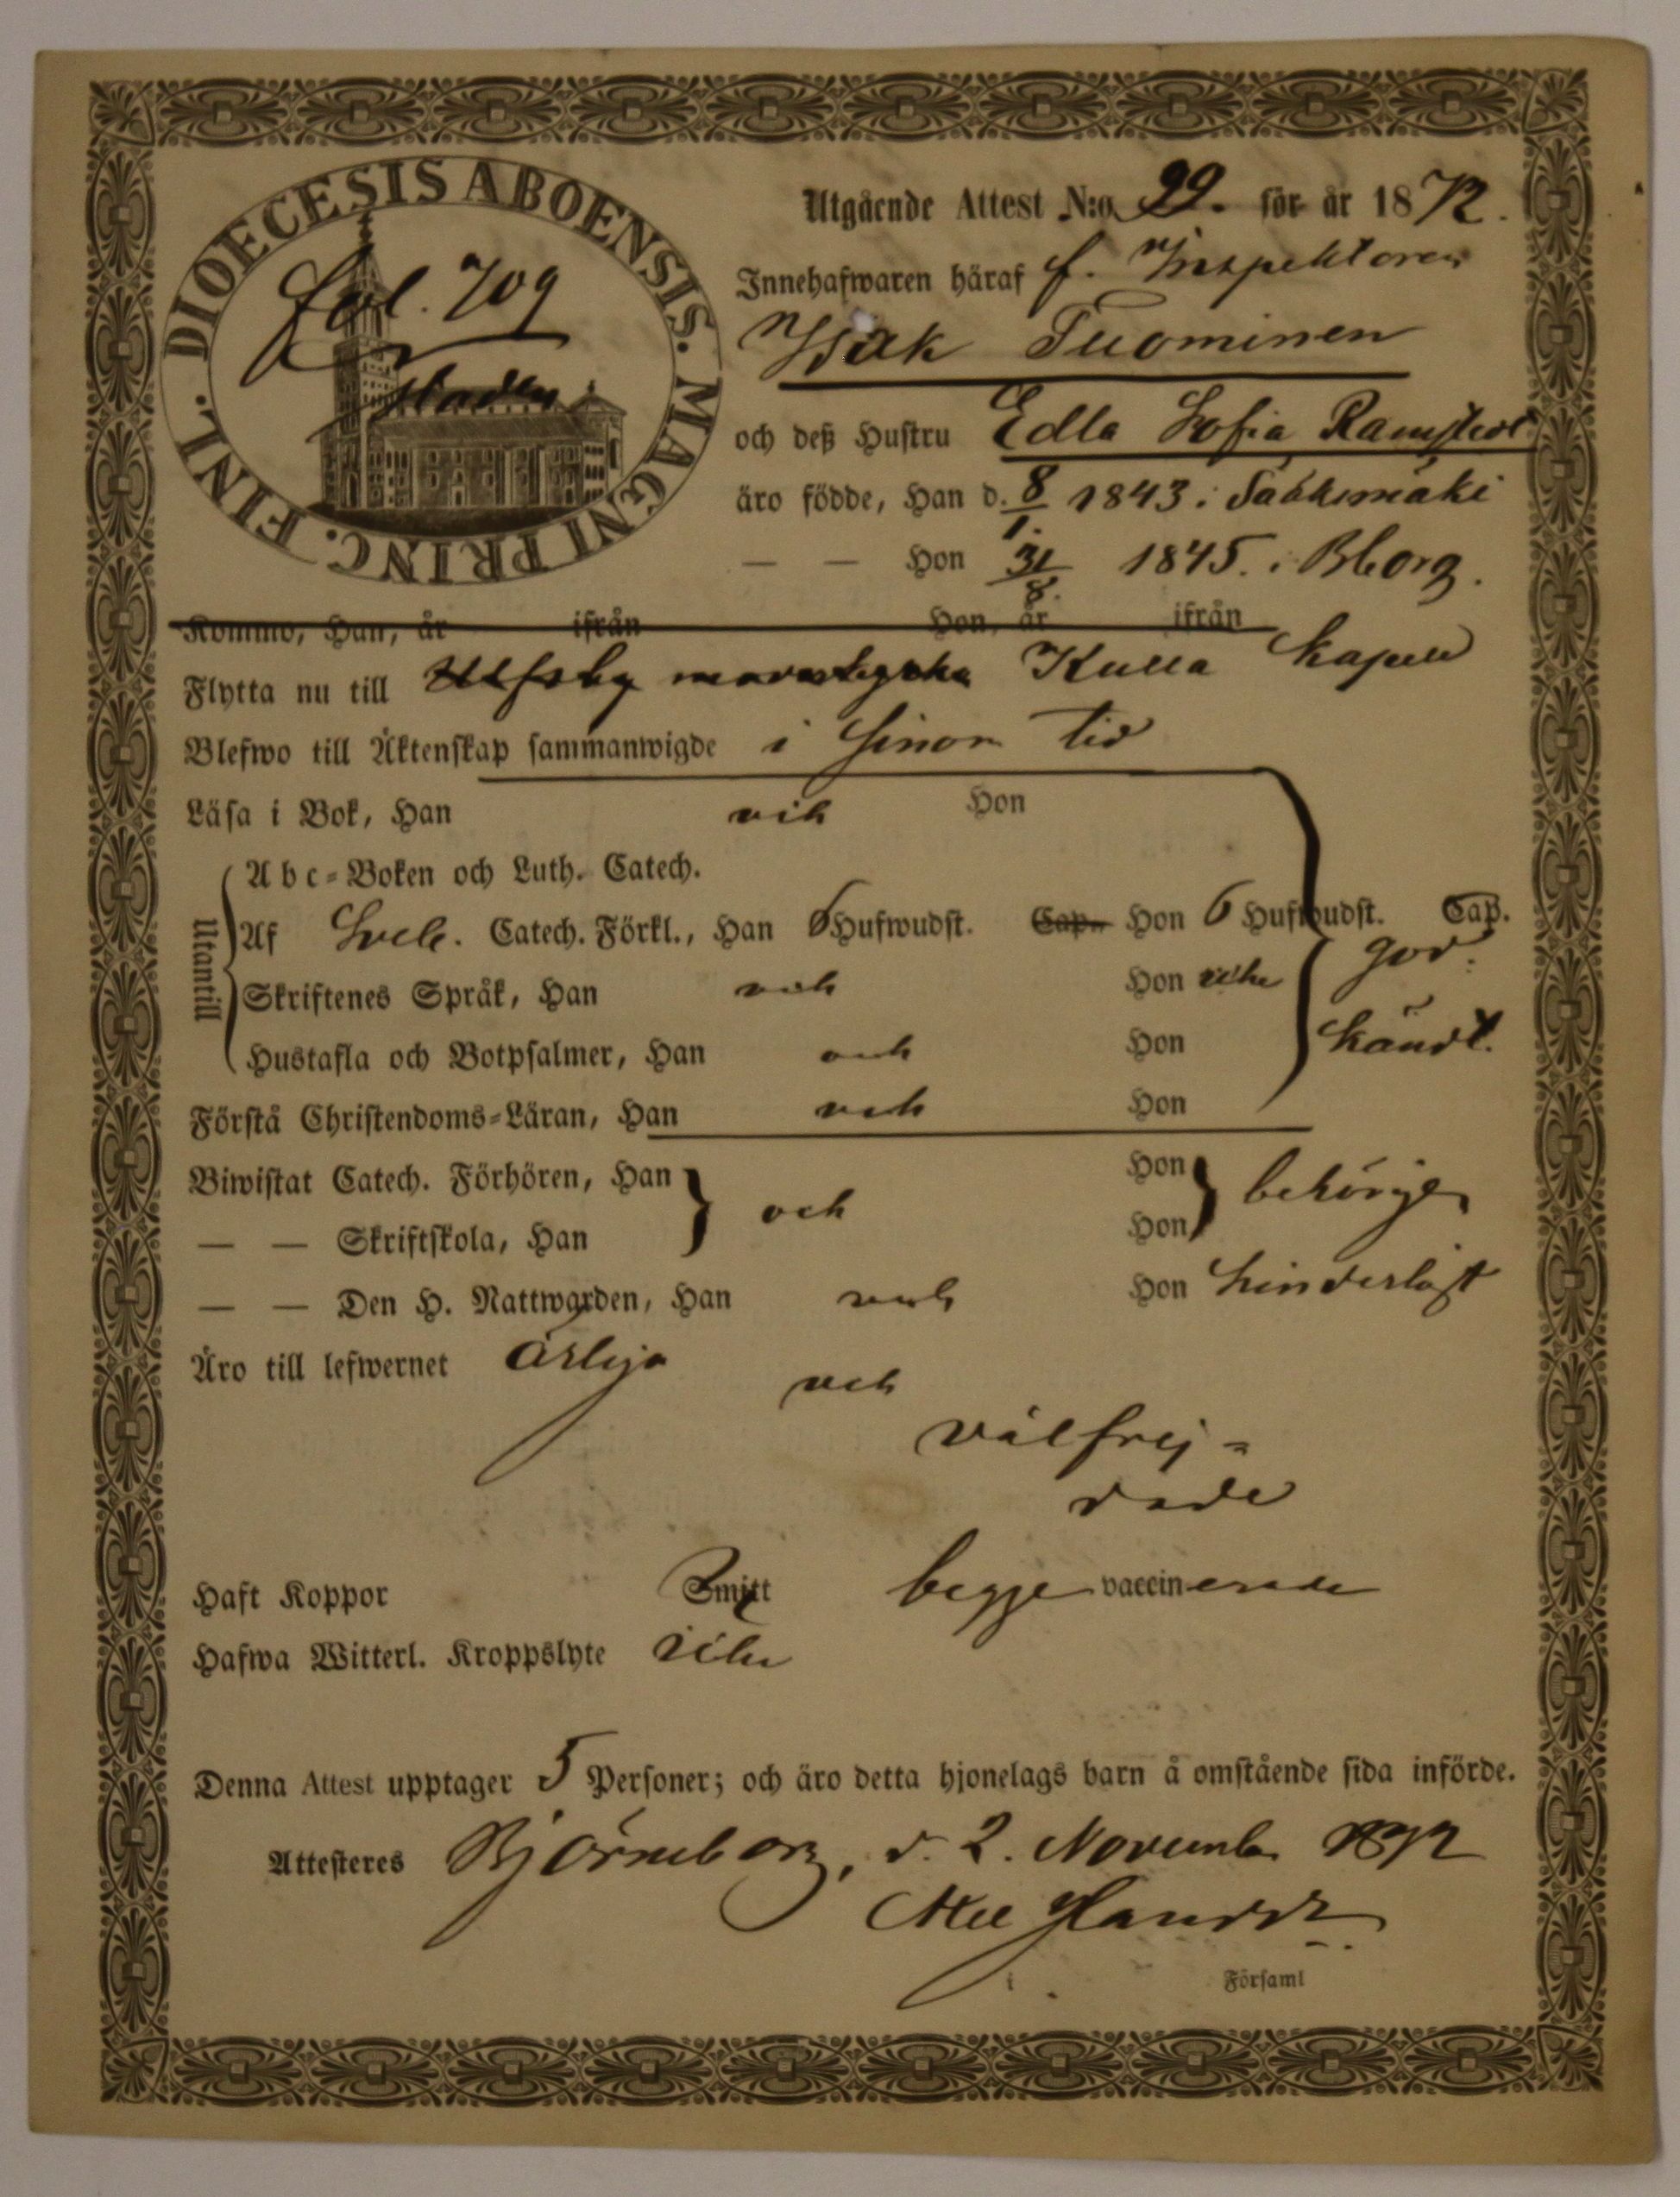 DIOECESIS ABOENSIS. MAGNI PRINC. FINL.
fol. 709
staden
Utgående Attest N:o 99. för år 1872.
Innehafwaren häraf f. Inspektoren
Isak Tuominen
och deß Hustru Edla Sofia Ramstedt
äro födde, Han d. 8/1. 1843 i Sääksmäki
— — Hon 31/8. 1845. i Bborg.
Kommo, Han, år ifrån Hon, år ifrån
Flytta nu till Ulfsby moderkyrka Kulla kapell
Blefwo till Äktenskap sammanwigde i sinom tid
Läsa i Bok, Han och Hon
Utantill
Abc-Boken och Luth. Catech.
Af Sveb. Catech. Förkl., Han 6 Hufwudst. Cap. Hon 6 Hufwudst. Cap.
god-
Skriftenes Språk, Han och Hon
Hustafla och Botpsalmer, Han och Hon
kändt.
Förstå Christendoms-Läran, Han och Hon
Biwistat Catech. Förhören, Han och Hon behörigen
— — Skriftskola, Han Hon
— — Den H. Nattwarden, Han och Hon hinderlöst
Äro till lefwernet ärliga
och
välfrej-
dade
Haft Koppor Smitt begge vaccinerade
Hafwa Witterl. Kroppslyte icke
Denna Attest upptager 5 Personer; och äro detta hjonelags barn å omstående sida införde.
Attesteres Björneborg, d. 2. November 1872
i Församl